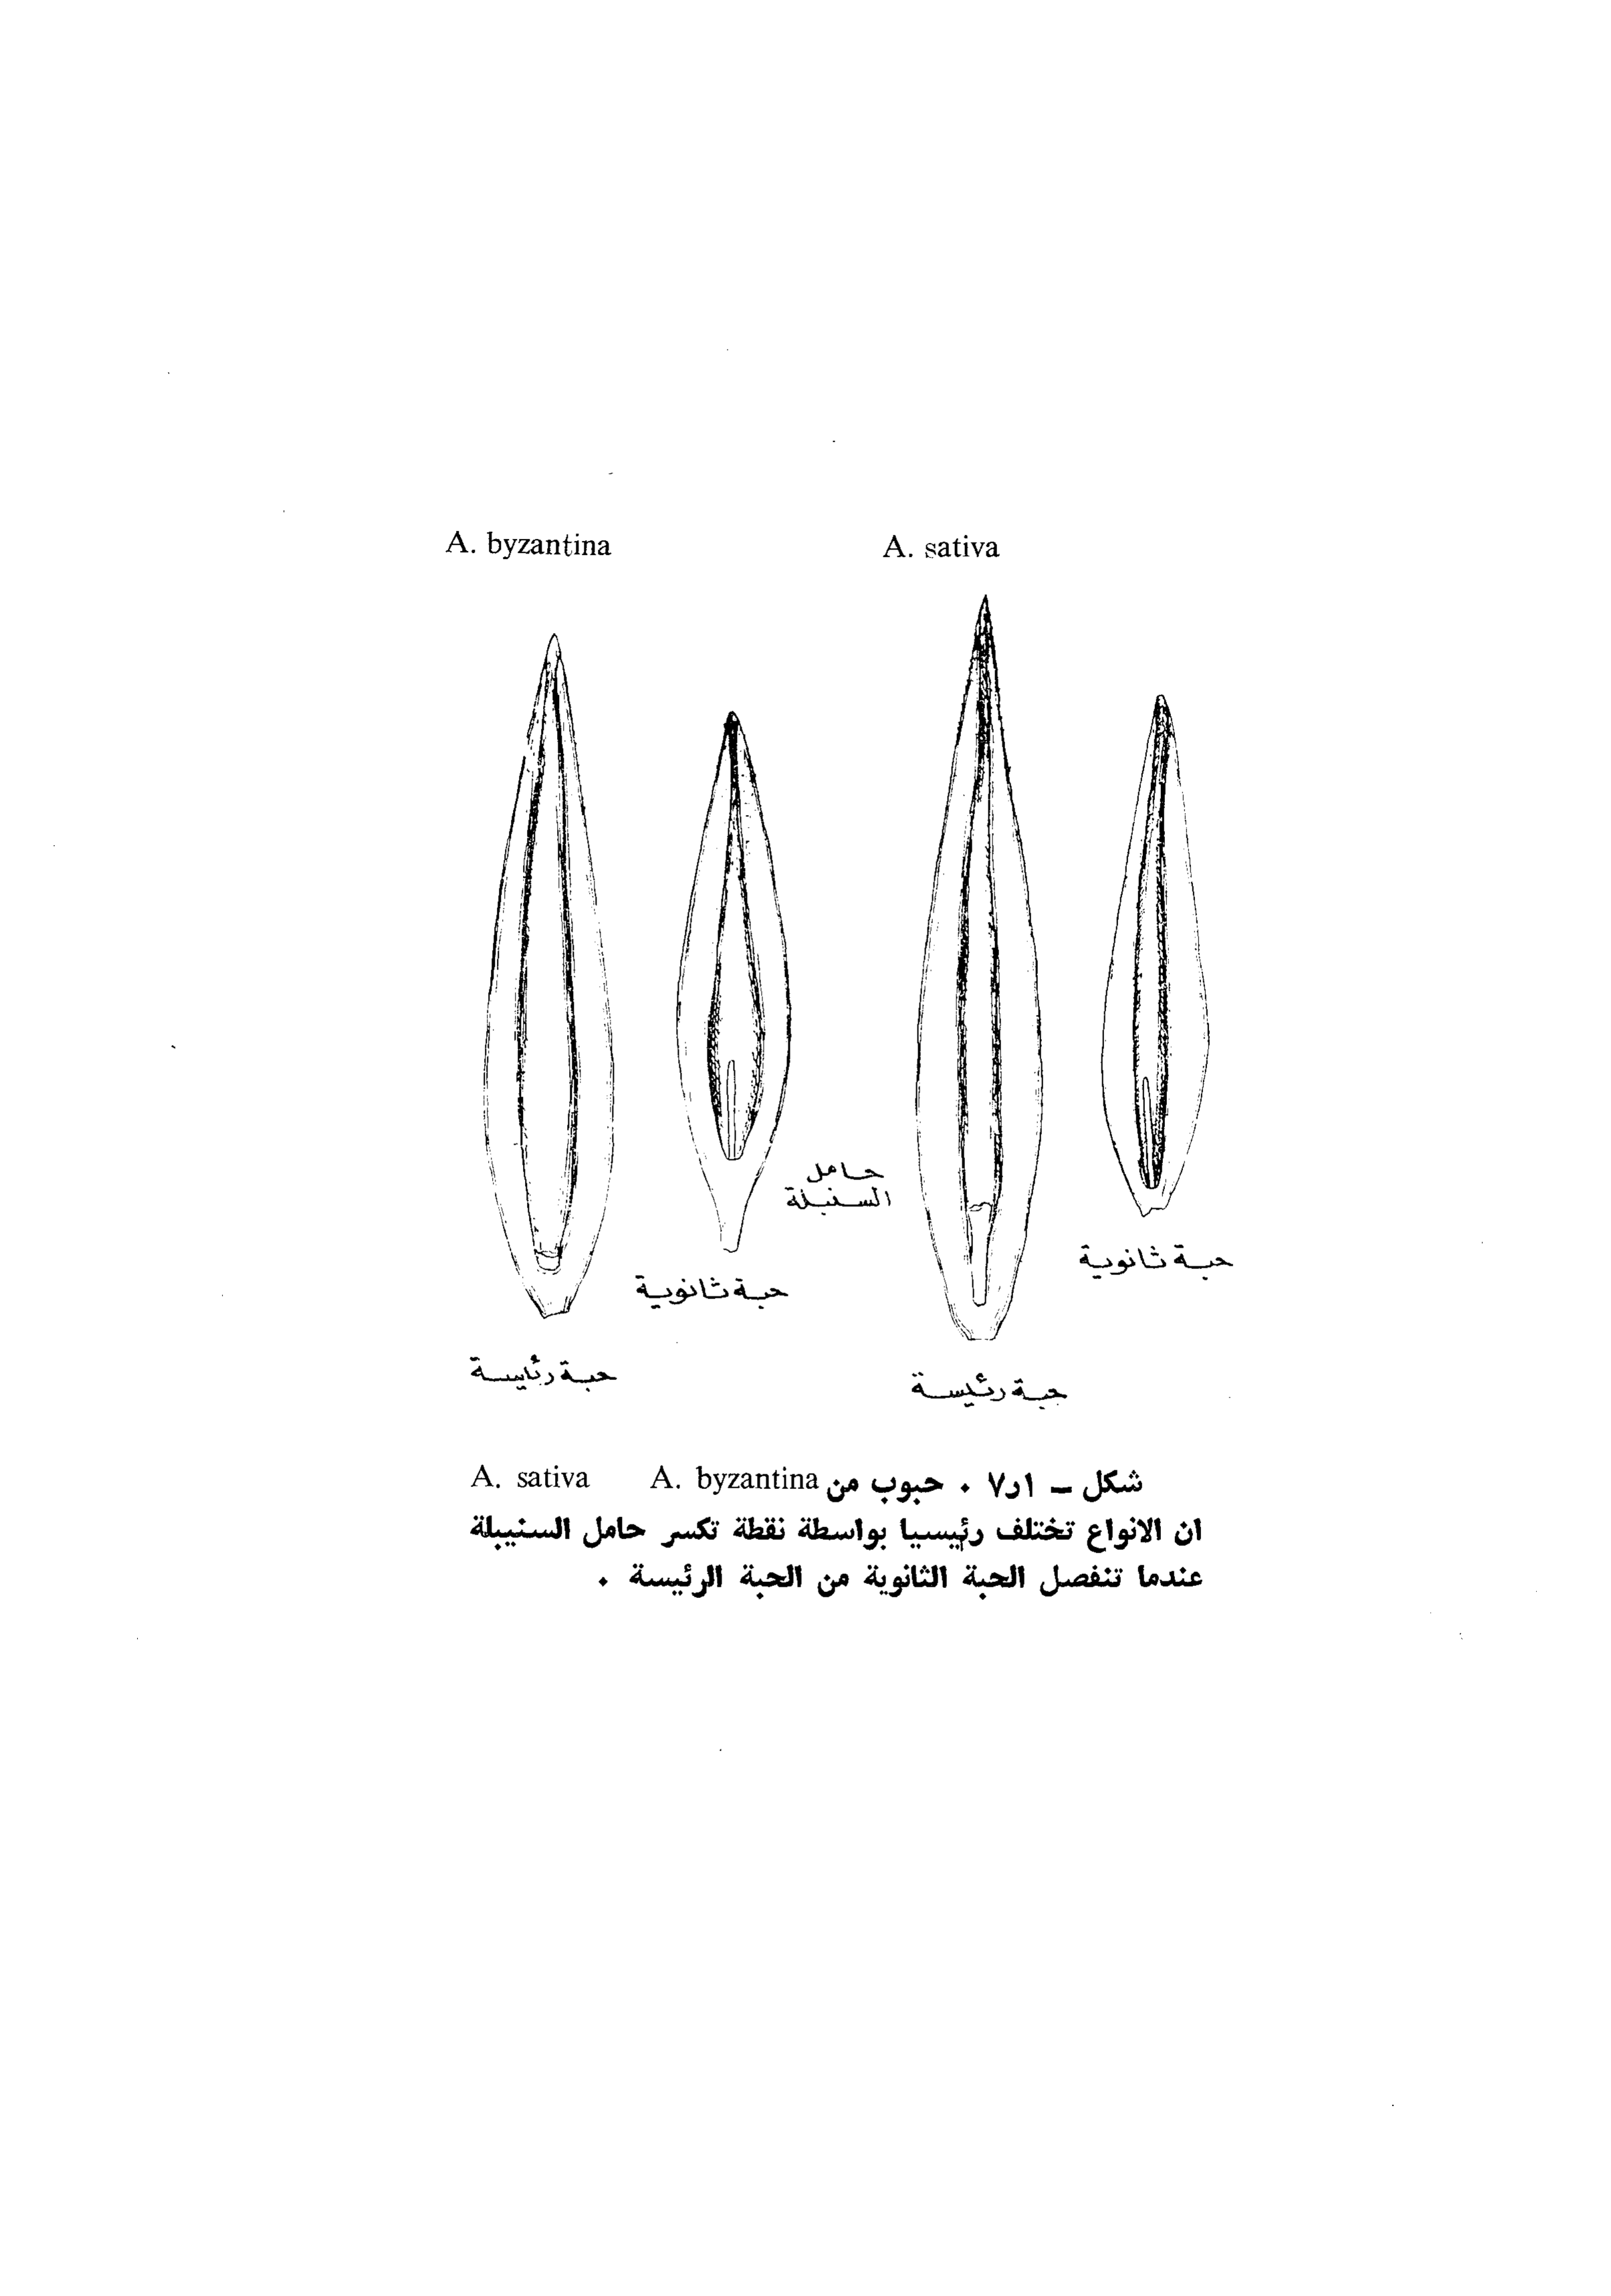 A. byzantina
A. sativa
حامل
السنبلة
حبة ثانوية
حبة ثانوية
حبة رئيسة
حبة رئيسة
شكل – ١ر٧ . حبوب من A. byzantina A. sativa
ان الانواع تختلف رئيسيا بواسطة نقطة تكسر حامل السنيبلة
عندما تنفصل الحبة الثانوية من الحبة الرئيسة .